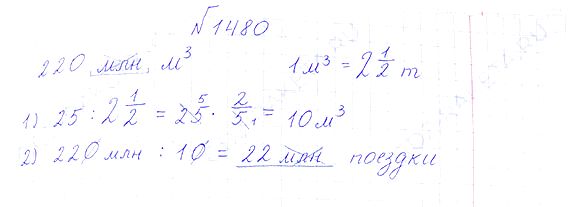 √1480
220 млн м³ 1 м³ = 2 1/2 т
1) 25 : 2 1/2 = 25 ⁵ · 2/5 ₁ = 10 м³
2) 220 млн : 10 = 22 млн поездки